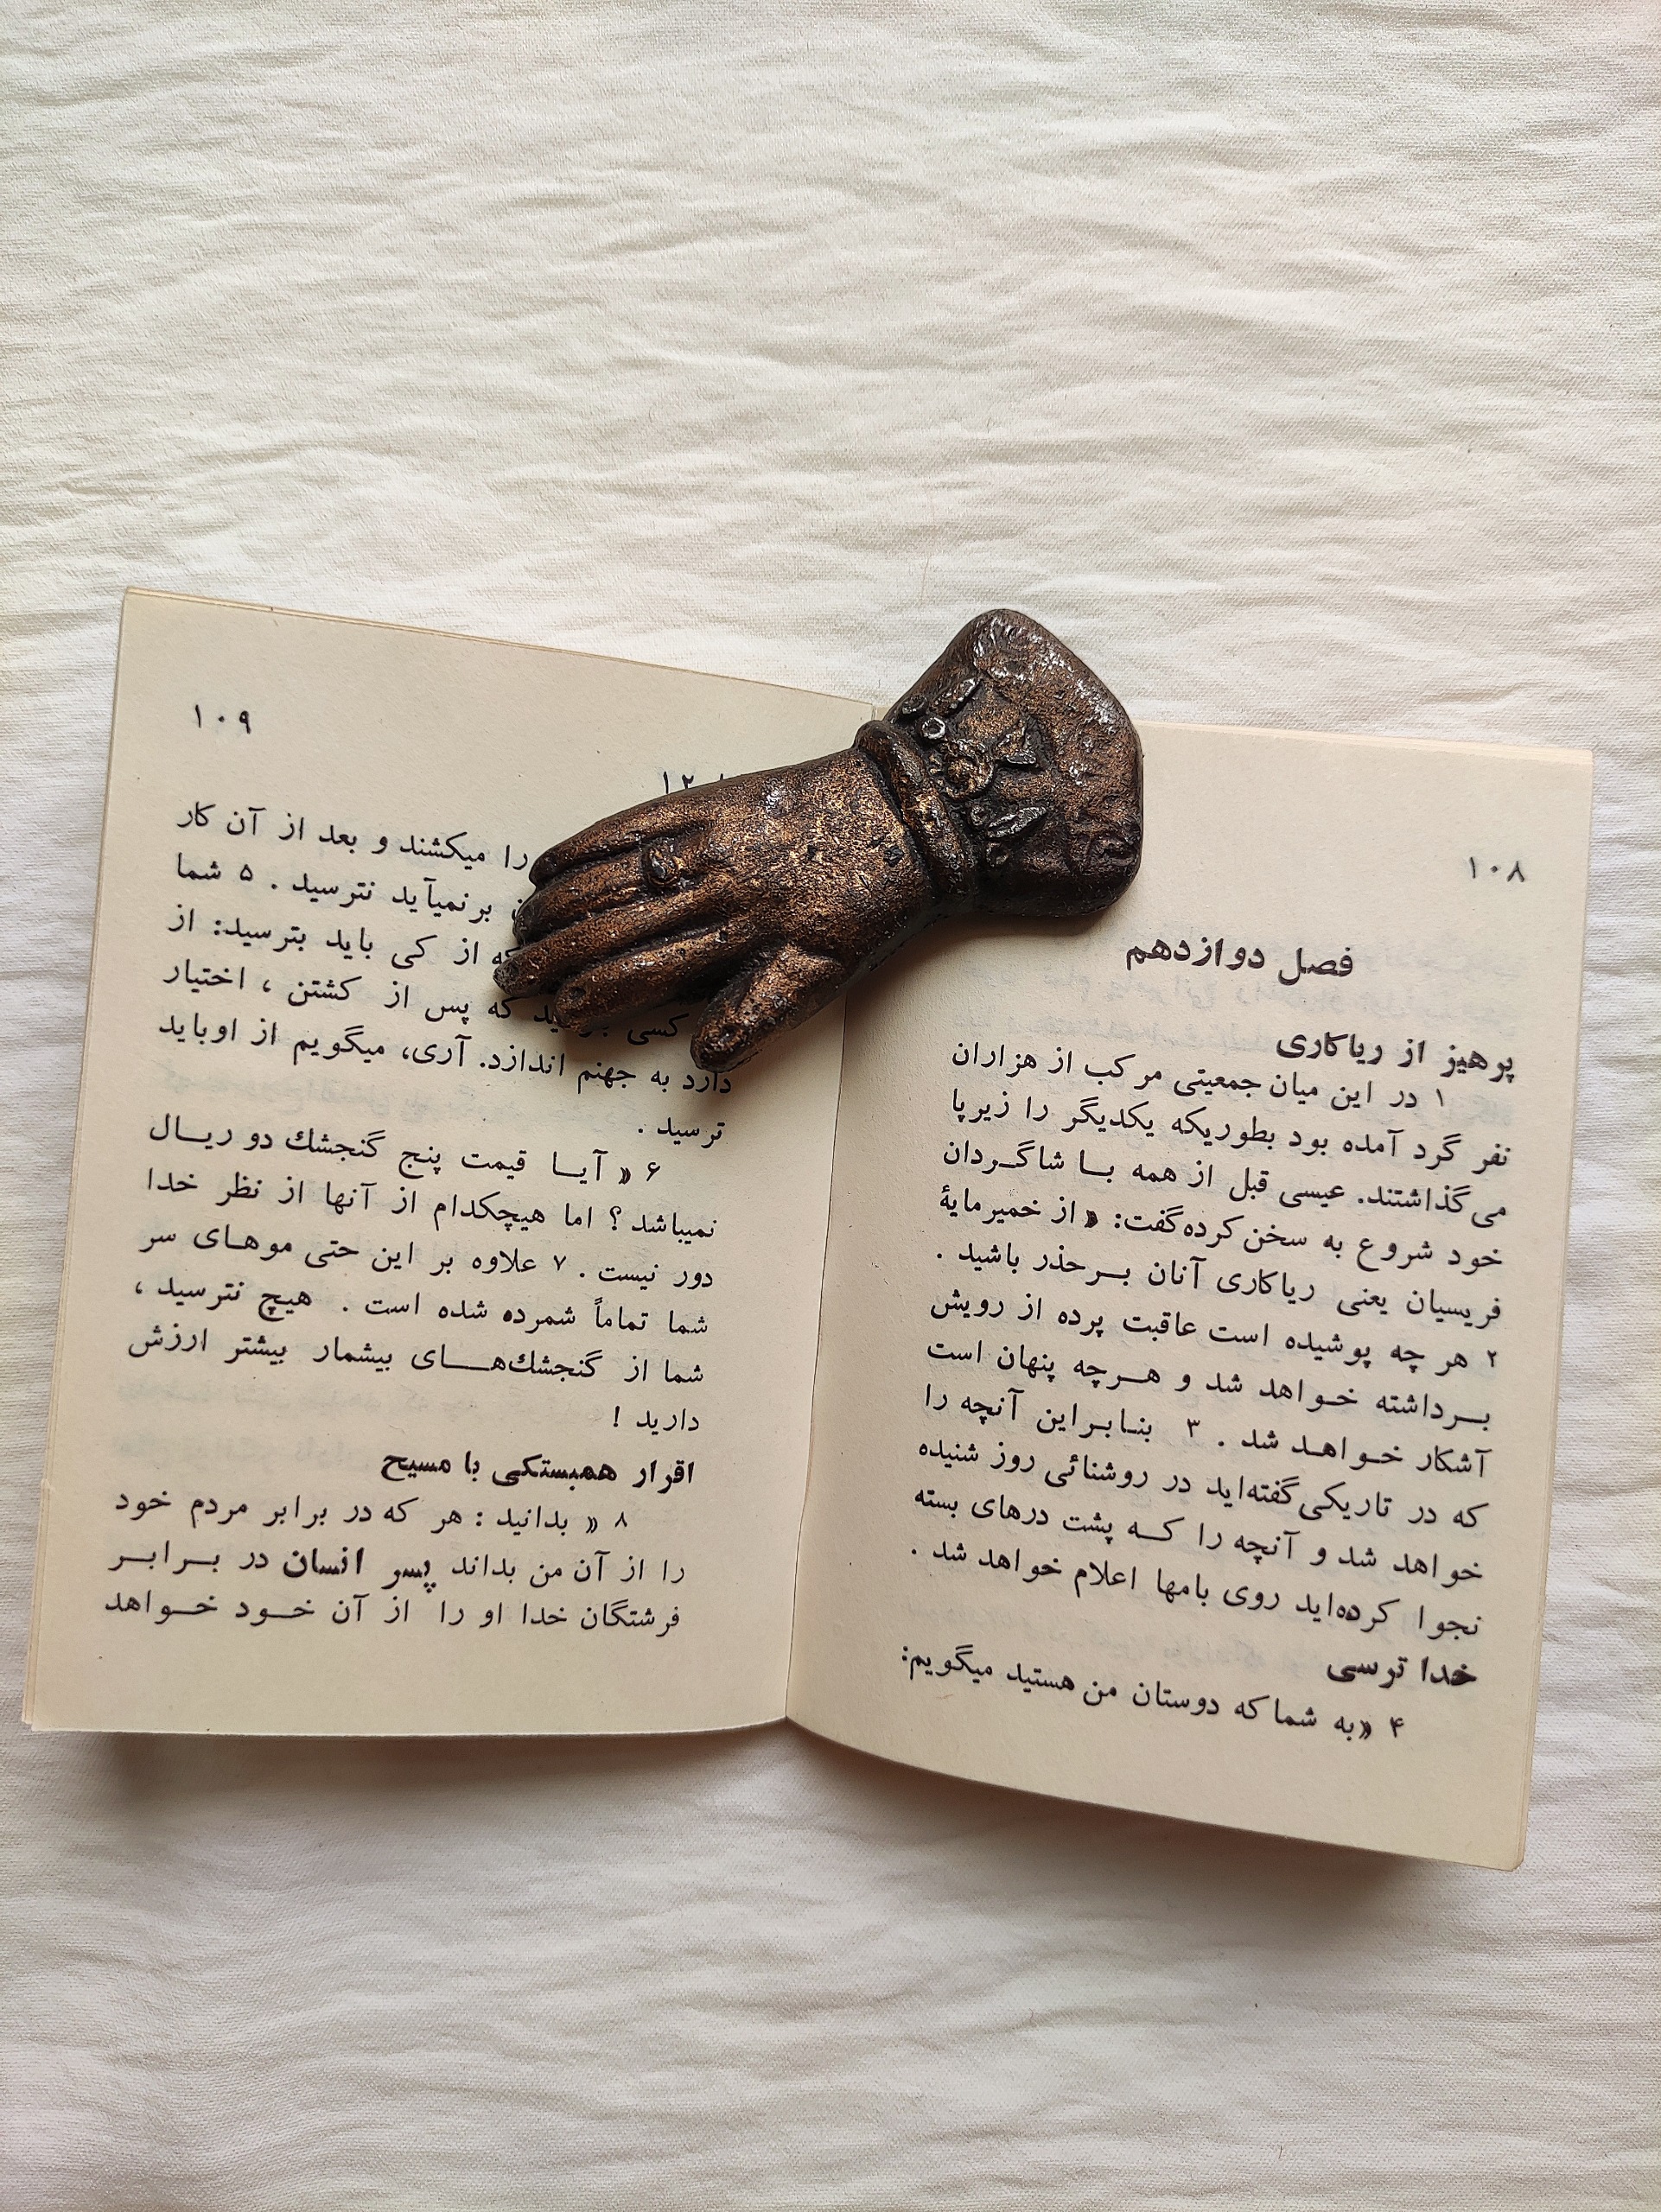 ۱۰۸
فصل دوازدهم
پرهیز از ریاکاری
۱ در این میان جمعیتی مرکب از هزاران
نفر گرد آمده بود بطوریکه یکدیگر را زیرپا
می‌گذاشتند. عیسی قبل از همه بـا شاگـردان
خود شروع به سخن کرده گفت: «از خمیرمایۀ
فریسیان یعنی ریاکاری آنان بـرحذر باشید .
۲ هر چه پوشیده است عاقبت پرده از رویش
بـرداشته خـواهد شد و هـرچه پنهان است
آشکار خـواهـد شد . ۳ بنـابـراین آنچه را
که در تاریکی گفته‌اید در روشنائی روز شنیده
خواهد شد و آنچه را کـه پشت درهای بسته
نجوا کرده‌اید روی بامها اعلام خواهد شد .
خدا ترسی
۴ «به شما که دوستان من هستید میگویم:
۱۰۹
۱۲
را میکشند و بعد از آن کار
برنمیآید نترسید . ۵ شما
از کی باید بترسید: از
کسی که پس از کشتن ، اختیار
دارد به جهنم اندازد. آری، میگویم از اوباید
ترسید .
۶ « آیـا قیمت پنج گنجشك دو ریـال
نمیباشد ؟ اما هیچکدام از آنها از نظر خدا
دور نیست . ۷ علاوه بر این حتی موهـای سر
شما تماماً شمرده شده است . هیچ نترسید ،
شما از گنجشك‌هـای بیشمار بیشتر ارزش
دارید !
اقرار همبستگی با مسیح
۸ « بدانید : هر که در برابر مردم خود
را از آن من بداند پسر انسان در بـرابـر
فرشتگان خدا او را از آن خـود خـواهد